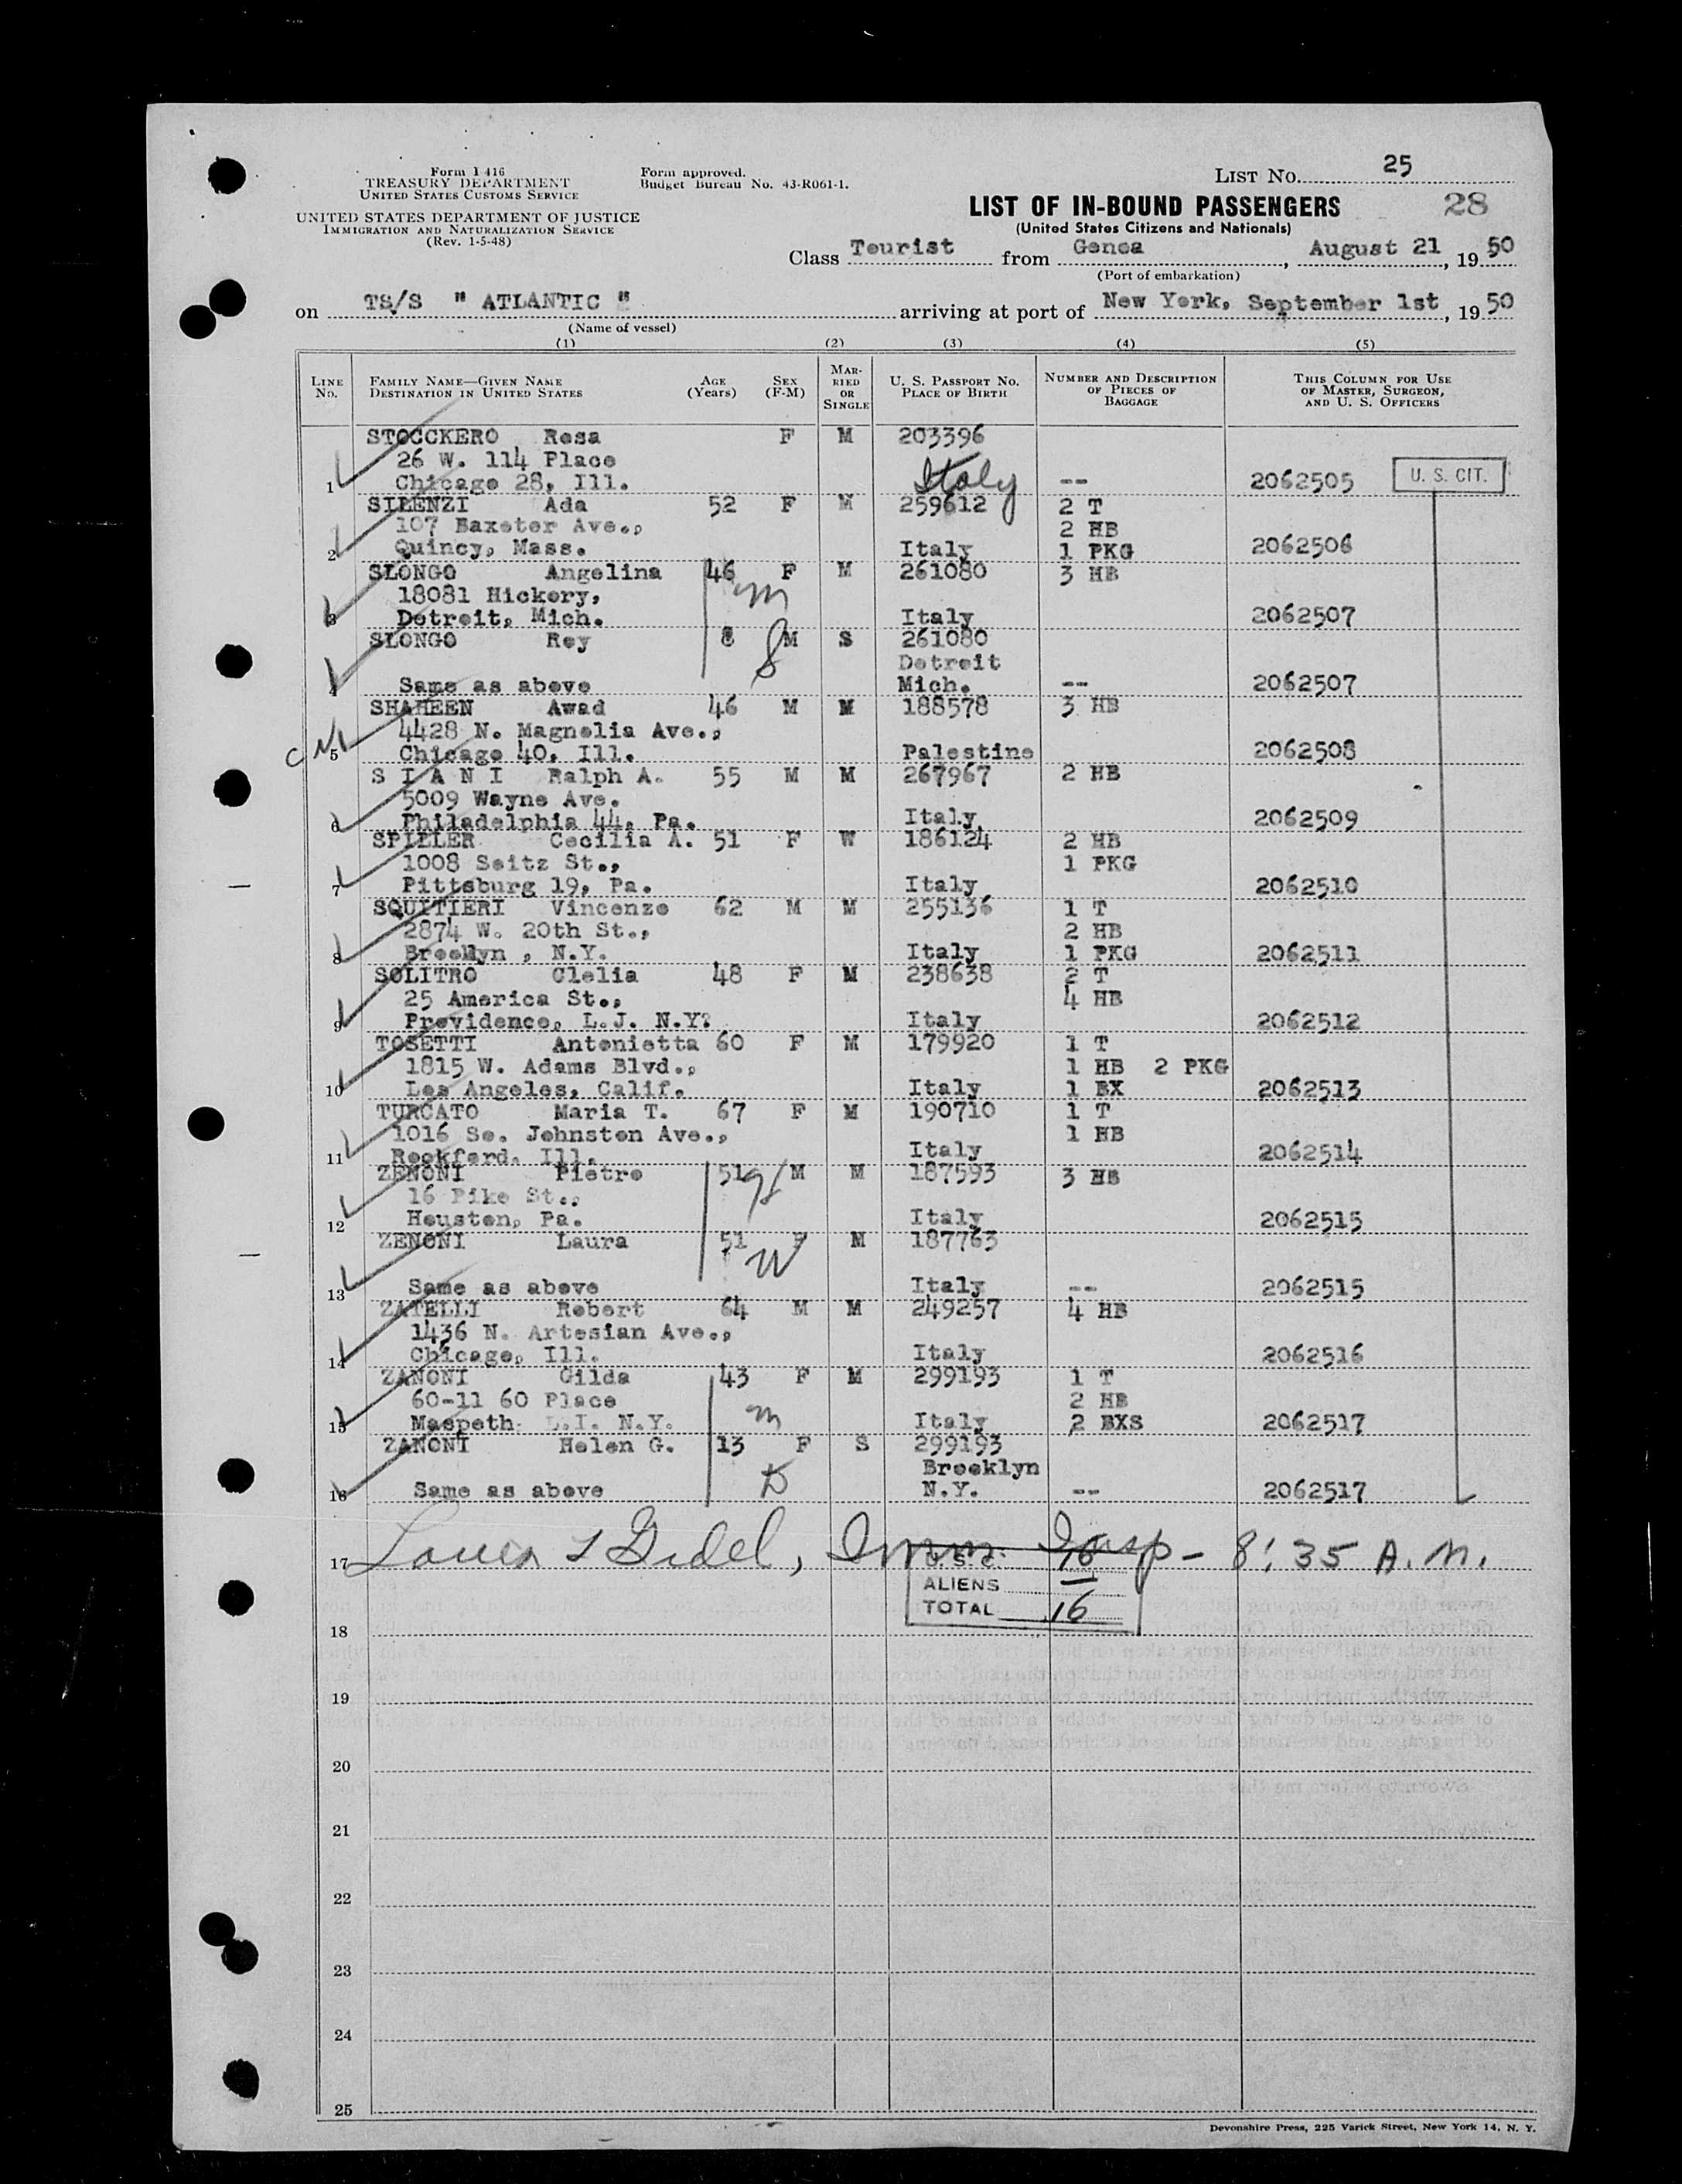 Form I-416
TREASURY DEPARTMENT
UNITED STATES CUSTOMS SERVICE
UNITED STATES DEPARTMENT OF JUSTICE
IMMIGRATION AND NATURALIZATION SERVICE
(Rev. 1-5-48)
Form approved.
Budget Bureau No. 43-R061-1.
LIST No. 25
LIST OF IN-BOUND PASSENGERS 28
(United States Citizens and Nationals)
Class Tourist from Genoa, August 21, 1950
(Port of embarkation)
on TS/S " ATLANTIC " arriving at port of New York, September 1st, 1950
(Name of vessel)
(1) (2) (3) (4) (5)
LINE No. FAMILY NAME—GIVEN NAME DESTINATION IN UNITED STATES AGE (Years) SEX (F-M) MARRIED OR SINGLE U. S. PASSPORT No. PLACE OF BIRTH NUMBER AND DESCRIPTION OF PIECES OF BAGGAGE THIS COLUMN FOR USE OF MASTER, SURGEON, AND U. S. OFFICERS
STOCCKERO Rosa F M 203396
26 W. 114 Place
1 Chicago 28, Ill. Italy -- 2062505 U. S. CIT.
SILENZI Ada 52 F M 259612 2 T
107 Baxeter Ave., 2 HB
2 Quincy, Mass. Italy 1 PKG 2062506
SLONGO Angelina 46 F M 261080 3 HB
18081 Hickory, m
3 Detroit, Mich. Italy 2062507
SLONGO Roy 8 M S 261080
S Detroit
4 Same as above Mich. -- 2062507
SHAHEEN Awad 46 M M 188578 3 HB
4428 N. Magnolia Ave.,
5 Chicago 40, Ill. Palestine 2062508
S I A N I Ralph A. 55 M M 267967 2 HB
5009 Wayne Ave.
6 Philadelphia 44, Pa. Italy 2062509
SPILLER Cecilia A. 51 F W 186124 2 HB
1008 Seitz St., 1 PKG
7 Pittsburg 19, Pa. Italy 2062510
SQUITIERI Vincenzo 62 M M 255136 1 T
2874 W. 20th St., 2 HB
8 Brooklyn , N.Y. Italy 1 PKG 2062511
SOLITRO Clelia 48 F M 238638 2 T
25 America St., 4 HB
9 Providence, L.J. N.Y? Italy 2062512
TOSETTI Antonietta 60 F M 179920 1 T
1815 W. Adams Blvd., 1 HB 2 PKG
10 Los Angeles, Calif. Italy 1 BX 2062513
TURCATO Maria T. 67 F M 190710 1 T
1016 So. Johnston Ave., 1 HB
11 Rockford, Ill. Italy 2062514
ZENONI Pietro 51 M M 187593 3 HB
16 Pike St.,
12 Houston, Pa. Italy 2062515
ZENONI Laura 51 F M 187763
W
13 Same as above Italy -- 2062515
ZATELLI Robert 64 M M 249257 4 HB
1436 N. Artesian Ave.,
14 Chicago, Ill. Italy 2062516
ZANONI Gilda 43 F M 299193 1 T
60-11 60 Place m 2 HB
15 Maspeth L.I. N.Y. Italy 2 BXS 2062517
ZANONI Helen G. 13 F S 299193
D Brooklyn
16 Same as above N.Y. -- 2062517
17 Imm. Insp - 8:35 A.M.
U. S. C. 16
ALIENS —
TOTAL 16
18
19
20
21
22
23
24
25
Devonshire Press, 225 Varick Street, New York 14, N. Y.